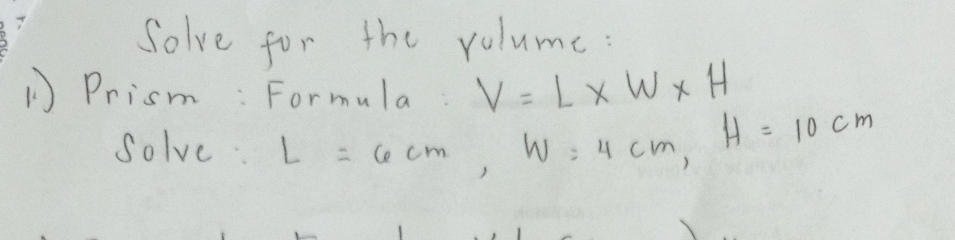 Solve for the volume:
1.) Prism : Formula : V = L x W x H
Solve : L = 6 cm, W = 4 cm, H = 10 cm